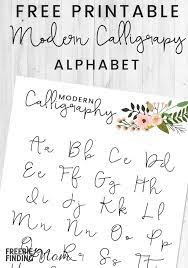 FREE PRINTABLE
Modern Calligrapy
ALPHABET
MODERN
Calligraphy
Aa Bb Cc Dd
Ee Ff Gg Hh
Ii Jj Kk Ll
Mm Nn Oo Pp
FREEBIE
FINDING
Mom